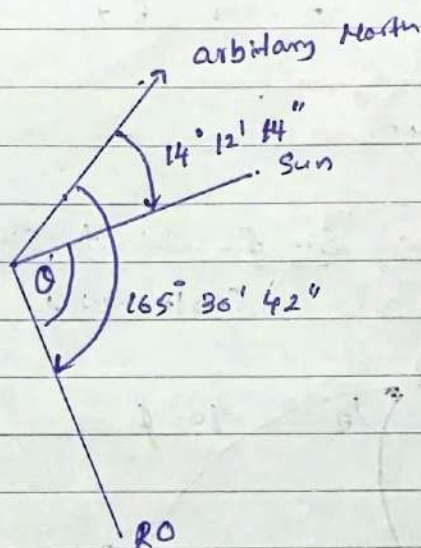 arbitary North
14° 12' 14"
Sun
θ
165° 30' 42"
RO